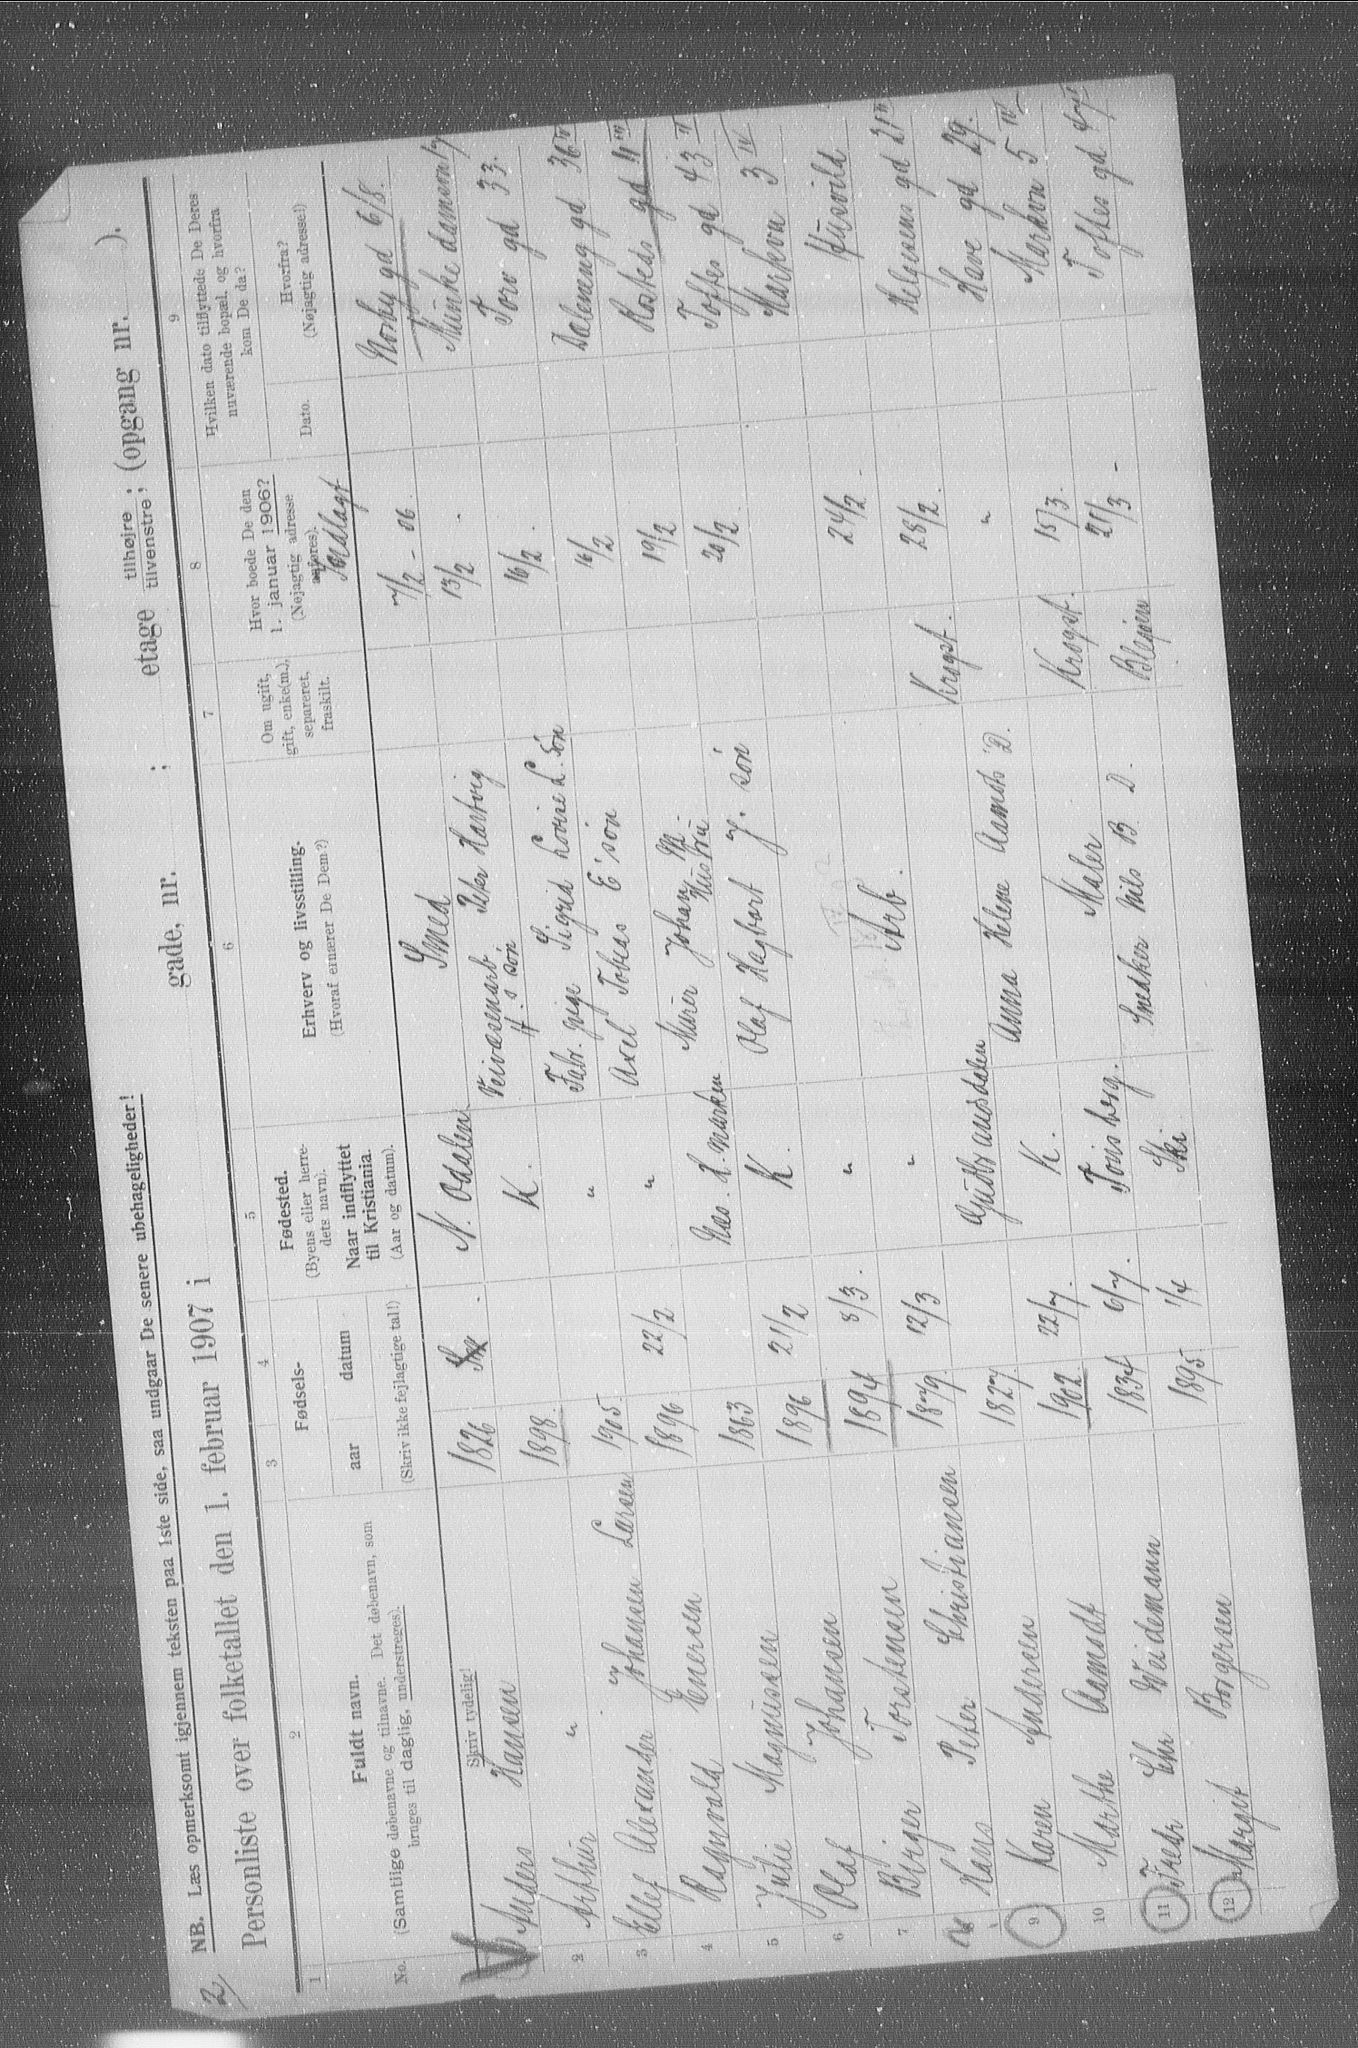 2/
NB. Læs opmerksomt igjennem teksten paa 1ste side, saa undgaar De senere ubehageligheder!
Personliste over folketallet den 1. februar 1907 i gade, nr. ; etage tilhøjre ; tilvenstre ; (opgang nr. ).
1 2 3 4 5 6 7 8 9
No.
Fuldt navn.
(Samtlige døbenavne og tilnavne. Det døbenavn, som
bruges til daglig, understreges).
Skriv tydelig!
Fødsels-
aar datum
(Skriv ikke fejlagtige tal!)
Fødested.
(Byens eller herre-
dets navn).
Naar indflyttet
til Kristiania.
(Aar og datum).
Erhverv og livsstilling.
(Hvoraf ernærer De Dem?)
Om ugift,
gift, enke(m.),
separeret,
fraskilt.
Hvor boede De den
1. januar 1906?
(Nøjagtig adresse
anføres).
Hvilken dato tilflyttede De Deres
nuværende bopæl, og hvorfra
kom De da?
Dato.
Hvorfra?
(Nøjagtig adresse!)
Indlagt
Anders Hansen 1826 N. Odalen Smed 7/2 - 06 Norby gd 6/8.
2 Arthur " 1898. K. Veivæsenarb Peter Hartvig H.s søn 13/2 - Munkedamsv 17
3 Ellef Alexander Johansen Larsen 1905. " Fabr. pige Sigrid Lovise L. søn 16/2 . Torv gd 33.
4 Ragnvald Enersen 1896 22/2 " Axel Tobias E's søn 16/2 Dæleneng gd 36 IV
5 Julie Magnussen 1863 Næs. H.marken Murer Johan M. Hustru 19/2 Rosteds gd 11 III
6 Olaf Johansen 1896 21/2 K. Olaf Hagbart J. søn 20/2 . Toftes gd 43 II
7 Birger Torstensen 1894 8/3 " Markvn 3 IV
Hans Peter Christiansen 1879. 12/3 " Arb. 24/2 . Husvild
9 Karen Andersen 1827 Gudbrandsdalen Krogst. 28/2 . Helgesens gd 21 II
10 Marthe Aamodt 1902. 22/7. K. Anna Helene Aamots D. " Have gd 29.
11 Fredr Chr Weidemann 1834 6/7. Tønsberg. Maler Krogst. 15/3. Markvn 5 IV
12 Margit Borgersen 1895 1/4 Ski Snedker Nils B. D. Blegen 21/3 - Toftes gd 47